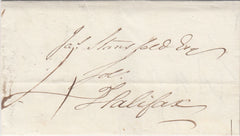 Jas Stansfeld Esq
Sol.
Halifax